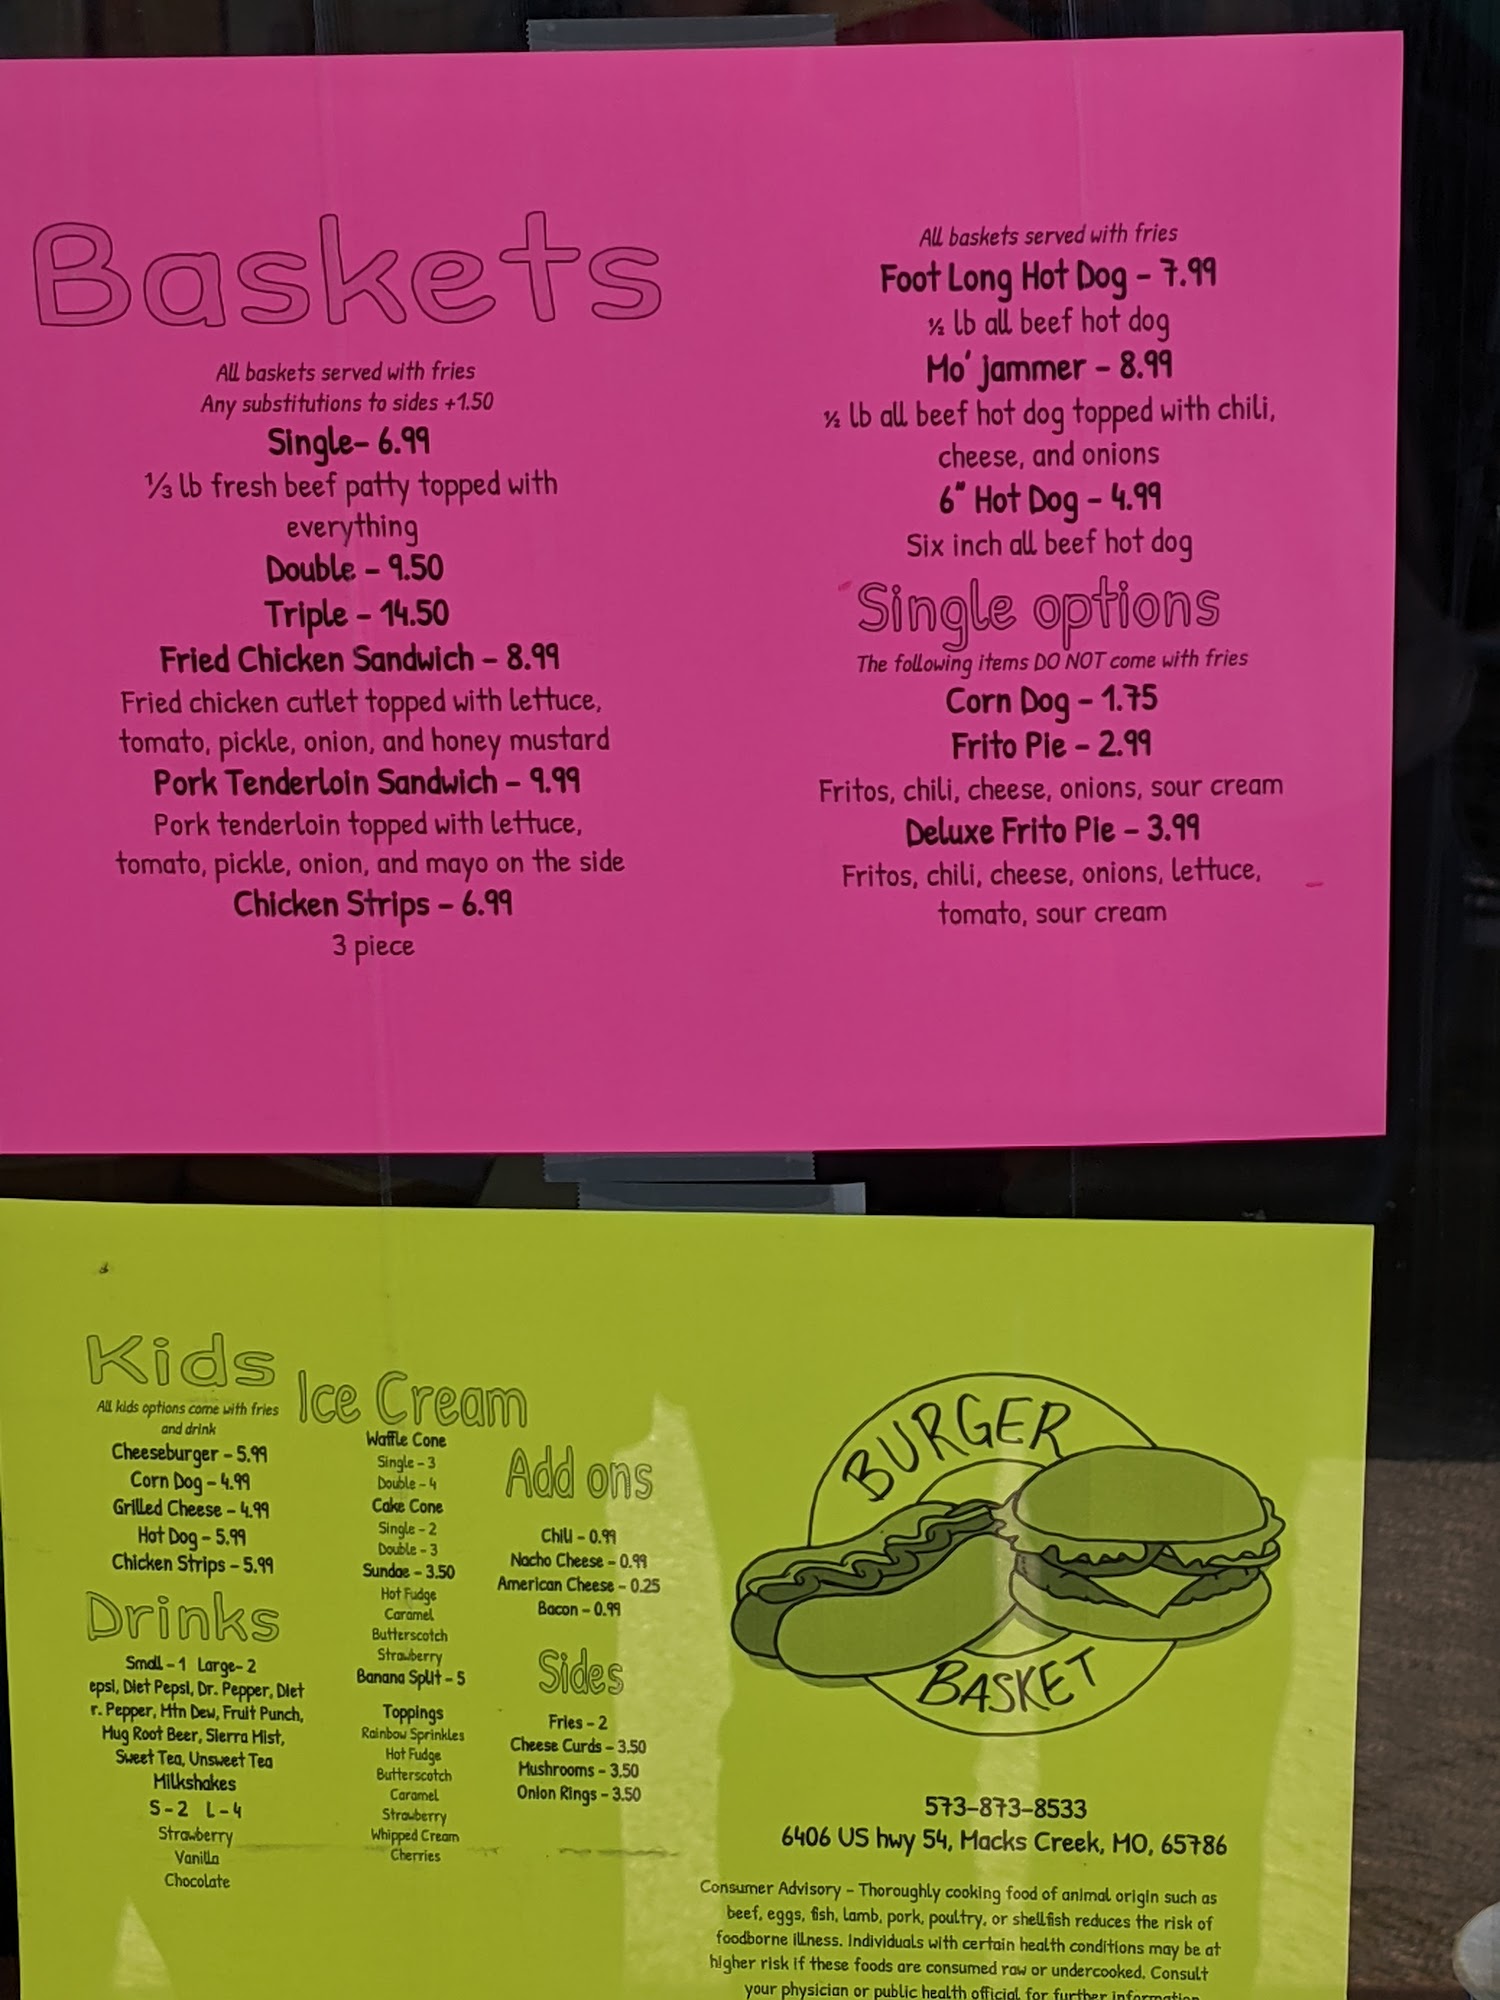 Baskets
All baskets served with fries
Any substitutions to sides +1.50
Single- 6.99
⅓ lb fresh beef patty topped with
everything
Double - 9.50
Triple - 14.50
Fried Chicken Sandwich - 8.99
Fried chicken cutlet topped with lettuce,
tomato, pickle, onion, and honey mustard
Pork Tenderloin Sandwich - 9.99
Pork tenderloin topped with lettuce,
tomato, pickle, onion, and mayo on the side
Chicken Strips - 6.99
3 piece
All baskets served with fries
Foot Long Hot Dog - 7.99
½ lb all beef hot dog
Mo' jammer - 8.99
½ lb all beef hot dog topped with chili,
cheese, and onions
6" Hot Dog - 4.99
Six inch all beef hot dog
Single options
The following items DO NOT come with fries
Corn Dog - 1.75
Frito Pie - 2.99
Fritos, chili, cheese, onions, sour cream
Deluxe Frito Pie - 3.99
Fritos, chili, cheese, onions, lettuce,
tomato, sour cream
Kids
All kids options come with fries
and drink
Cheeseburger - 5.99
Corn Dog - 4.99
Grilled Cheese - 4.99
Hot Dog - 5.99
Chicken Strips - 5.99
Drinks
Small - 1 Large- 2
epsi, Diet Pepsi, Dr. Pepper, Diet
r. Pepper, Mtn Dew, Fruit Punch,
Mug Root Beer, Sierra Mist,
Sweet Tea, Unsweet Tea
Milkshakes
S - 2 L - 4
Strawberry
Vanilla
Chocolate
Ice Cream
Waffle Cone
Single - 3
Double - 4
Cake Cone
Single - 2
Double - 3
Sundae - 3.50
Hot Fudge
Caramel
Butterscotch
Strawberry
Banana Split - 5
Toppings
Rainbow Sprinkles
Hot Fudge
Butterscotch
Caramel
Strawberry
Whipped Cream
Cherries
Add ons
Chili - 0.99
Nacho Cheese - 0.99
American Cheese - 0.25
Bacon - 0.99
Sides
Fries - 2
Cheese Curds - 3.50
Mushrooms - 3.50
Onion Rings - 3.50
BURGER
BASKET
573-873-8533
6406 US hwy 54, Macks Creek, MO, 65786
Consumer Advisory - Thoroughly cooking food of animal origin such as
beef, eggs, fish, lamb, pork, poultry, or shellfish reduces the risk of
foodborne illness. Individuals with certain health conditions may be at
higher risk if these foods are consumed raw or undercooked. Consult
your physician or public health official for further information